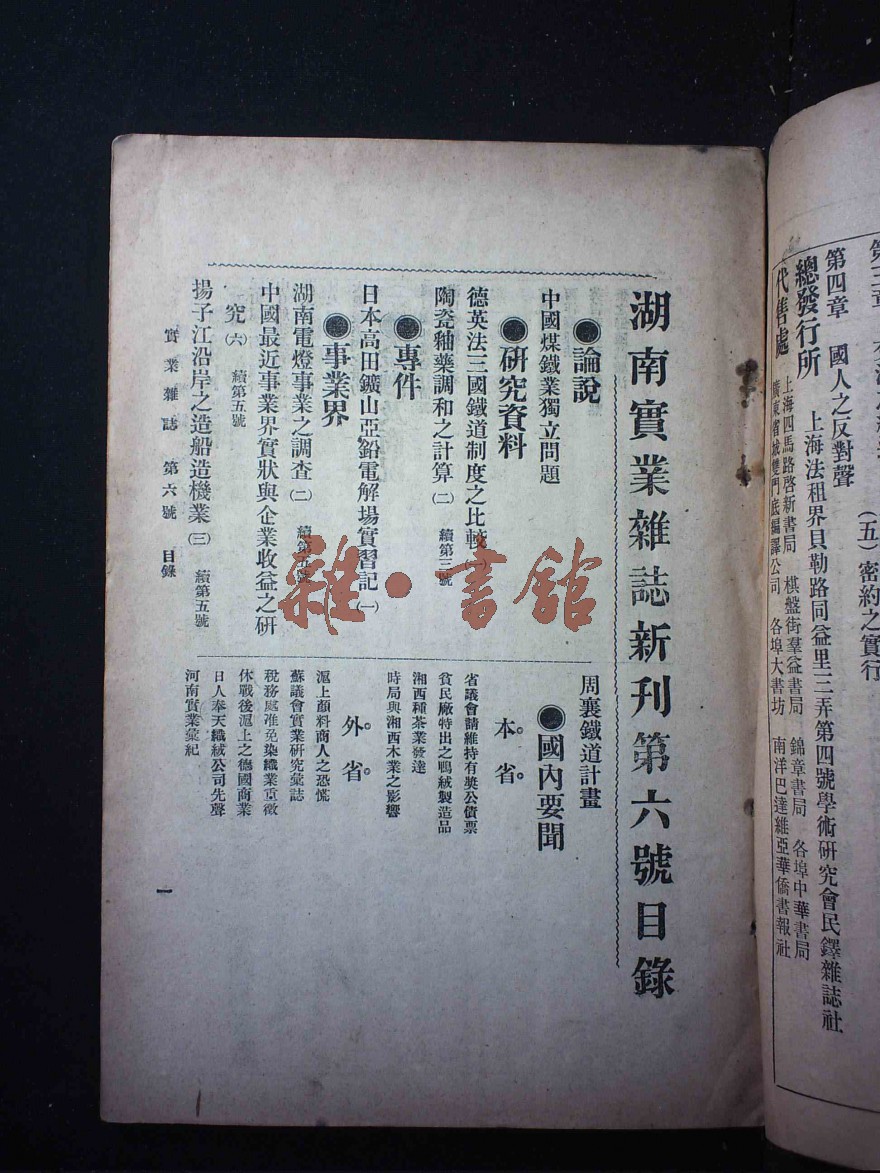 第四章　國人之反對聲
(五)密約之實行
總發行所　上海法租界貝勒路同益里三弄第四號學術研究會民鐸雜誌社
代售處
上海四馬路啓新書局　棋盤街羣益書局　錦章書局　各埠中華書局
廣東省城雙門底編譯公司　各埠大書坊　南洋巴達維亞華僑書報社
湖南實業雜誌新刊第六號目錄
●論說
中國煤鐵業獨立問題
●研究資料
德英法三國鐵道制度之比較(一)
陶瓷釉藥調和之計算(二)　續第三號
●專件
日本高田鑛山亞鉛電解場實習記(一)
●事業界
湖南電燈事業之調查(二)　續第五號
中國最近事業界實狀與企業收益之研
究(六)　續第五號
揚子江沿岸之造船造機業(三)　續第五號
周襄鐵道計畫
●國內要聞
本省
省議會請維持有奬公債票
貧民廠特出之鴨絨製造品
湘西種茶業發達
時局與湘西木業之影響
外省
滬上顏料商人之恐慌
蘇議會實業研究彙誌
稅務處准免染織業重徵
休戰後滬上之德國商業
日人奉天纖絨公司先聲
河南實業彙紀
實業雜誌　第六號　目錄
一
雜·書舘